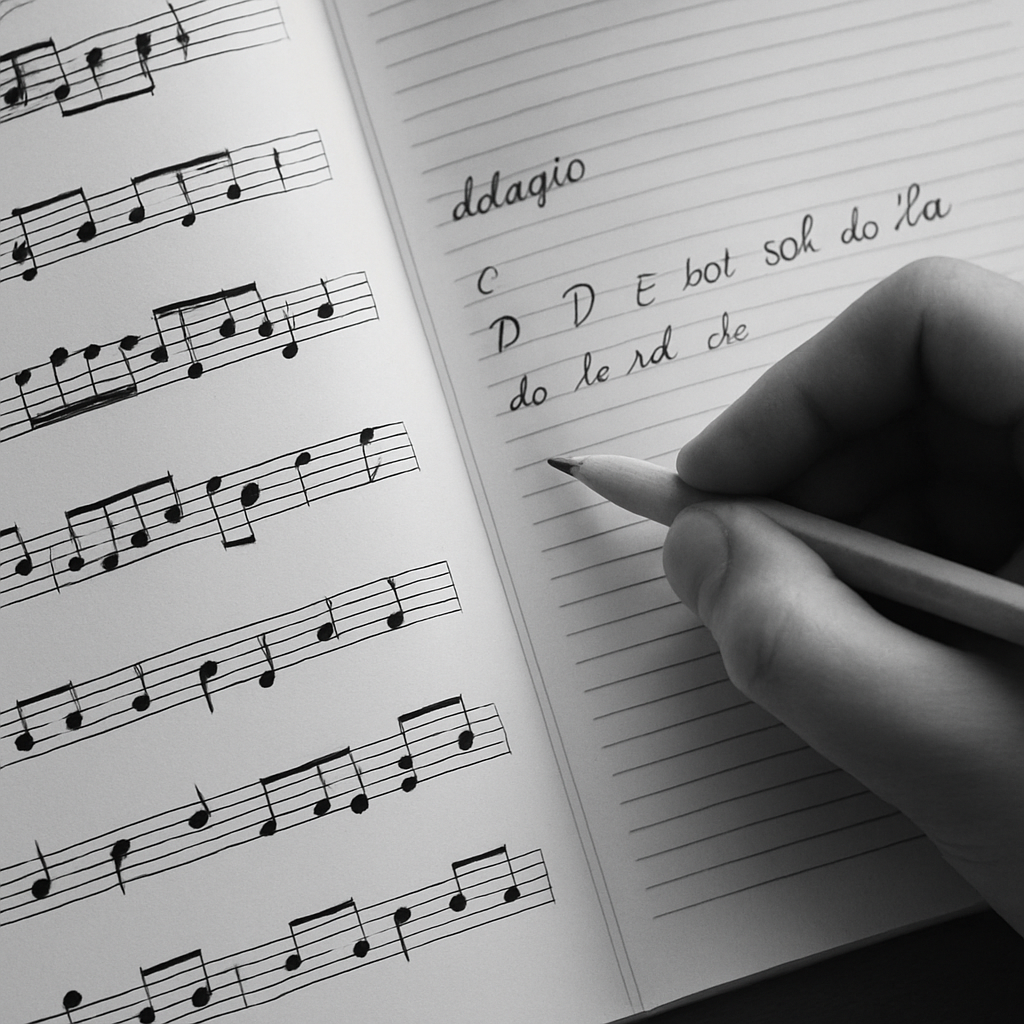 ddagio
C
D D E bot soh do 'la
do le rd che